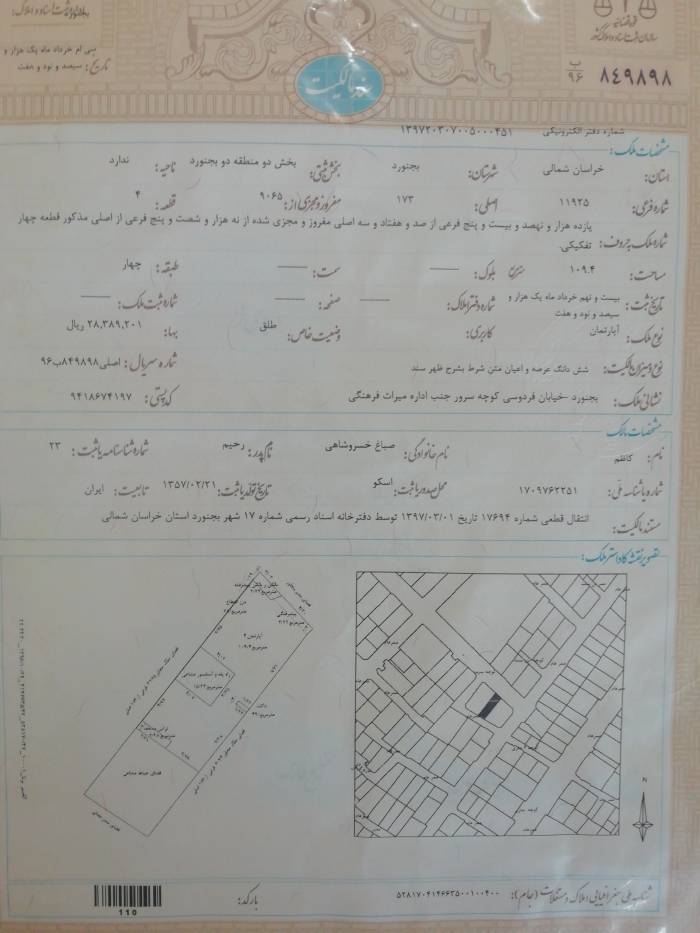 سازمان ثبت اسناد و املاک کشور
۸۴۹۸۹۸ ب ۹۶
سی ام خرداد ماه یک هزار و
تاریخ: سیصد و نود و هفت
سند مالکیت
شماره دفتر الکترونیکی ۱۳۹۷۲۰۳۰۷۰۰۵۰۰۰۴۵۱
مشخصات ملک:
استان: خراسان شمالی شهرستان: بجنورد بخش ثبتی: بخش دو منطقه دو بجنورد ناحیه: ندارد
شماره فرعی: ۱۱۹۲۵ اصلی: ۱۷۳ مفروز و مجزی از: ۹۰۶۵ قطعه: ۴
شماره ملک به حروف: یازده هزار و نهصد و بیست و پنج فرعی از صد و هفتاد و سه اصلی مفروز و مجزی شده از نه هزار و شصت و پنج فرعی از اصلی مذکور قطعه چهار
تفکیکی.
مساحت: ۱۰۹.۴ مترمربع بلوک: —— سمت: —— طبقه: چهار
تاریخ ثبت: بیست و نهم خرداد ماه یک هزار و سیصد و نود و هفت شماره دفتر املاک: —— صفحه: —— شماره ثبت ملک: ——
نوع ملک: آپارتمان کاربری: وضعیت خاص: طلق بها: ۲۸,۳۸۹,۲۰۱ ریال
نوع و میزان مالکیت: شش دانگ عرصه و اعیان متن شرط بشرح ظهر سند شماره سریال: اصلی۸۴۹۸۹۸ب۹۶
نشانی ملک: بجنورد -خیابان فردوسی کوچه سرور جنب اداره میراث فرهنگی کد پستی: ۹۴۱۸۶۷۴۱۹۷
مشخصات مالک
نام: کاظم نام خانوادگی: صباغ خسروشاهی نام پدر: رحیم شماره شناسنامه یا ثبت: ۲۳
شماره یا شناسه ملی: ۱۷۰۹۷۶۲۲۵۱ محل صدور یا ثبت: اسکو تاریخ تولد یا ثبت: ۱۳۵۷/۰۲/۲۱ تابعیت: ایران
مستند مالکیت: انتقال قطعی شماره ۱۷۶۹۴ تاریخ ۱۳۹۷/۰۳/۰۱ توسط دفترخانه اسناد رسمی شماره ۱۷ شهر بجنورد استان خراسان شمالی
تصویر نقشه کاداستر ملک:
آپارتمان ۴
فضای حیاط مشاعی
N
شناسه ملی جغرافیایی املاک و مستغلات (جام): ۵۲۸۱۷۰۴۱۴۶۶۳۵۰۰۱۰۰۴۰۰
بارکد:
110